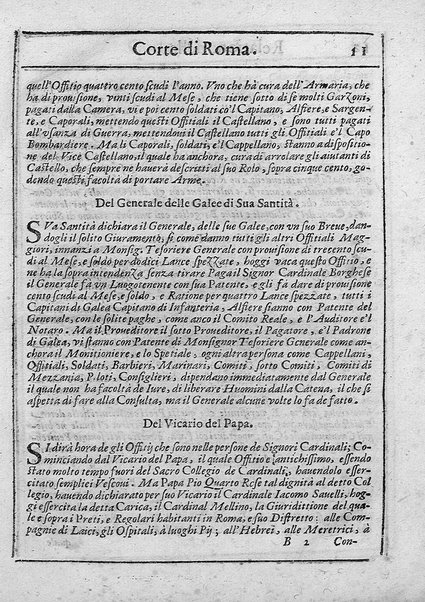 Corte di Roma. 11
quell'Offitio quattro cento scudi l'anno. Vno che hà cura dell'Armaria, che
ha di prouisione, vinti scudi al Mese, che tiene sotto di se molti Garzoni,
pagati dalla Camera, vi e poi cento soldati cō'l Capitano, Alfiere, e Sargen-
te, e Caporali, mettendo questi Offitiali il Castellano, e sono tutti pagati
all'vsanza di Guerra, mettendoui il Castellano tutti gli Offitiali e'l Capo
Bombardiere. Ma li Caporali, soldati, e'l Cappellano, stanno a dispositio
ne del Vice Castellano, il quale hà anchora, cura di arrolare gli aiutanti di
Castello, che sempre ne hauerà descritti al suo Rolo, sopra cinque cento, go-
dendo questi, facoltà di portare Arme.
Del Generale delle Galee di Sua Santità.
SVa Santità dichiara il Generale, delle sue Galee, con vn suo Breue, dan-
dogli il solito Giuramento, si come danno tutti gli altri Offitiali Mag-
giori, innanzi a Monsig. Tesoriere Generale con prouisione di trecento scu-
di al Mese, e soldo per dodici Lance spezzate, hoggi vaca questo Offitio, e
ne hà la sopra intendenza senza tirare Paga il Signor Cardinale Borghese
il Generale fà vn Luogotenente con sua Patente, e gli fà dare di prouisione
cento scudi al Mese, e soldo, e Ratione per quattro Lance spezzate, tutti i
Capitani di Galea Capitano di Infanteria, Alfiere fianno con Patente del
Generale, con le solite paghe, come anco il Comito Reale, e l'Auditore e'l
Notaro. Ma il Proueditore il sotto Proueditore, il Pagatore, e'l Padrone
di Galea, vi stanno con Patente di Monsignor Tesoriere Generale come an-
chora il Monitioniere, e lo Spetiale, ogni altra persona come Cappellani,
Offitiali, Soldati, Barbieri, Marinari, Comiti, sotto Comiti, Comiti di
Mezzania, Piloti, Consiglieri, dipendano immediatamente dal Generale
il quale non ha facoltà de Iure, di liberare Huomini dalla Catena, il che si
aspetta di fare alla Consulta, ma il Generale alcune volte lo fà de fatto.
Del Vicario del Papa.
SI dirà hora de gli Offitij che sono nelle persone de Signori Cardinali; Co-
minciando dal Vicario del Papa, il quale Offitio è antichissimo, essendo
stato molto tempo fuori del Sacro Collegio de Cardinali, hauendolo esser-
citato semplici Vescoui. Ma Papa Pio Quarto Rese tal dignità al detto Col
legio, hauendo dichiarato per suo Vicario il Cardinale Iacomo Sauelli, hog-
gi essercita la detta Carica, il Cardinal Mellino, la Giuridittione del qua-
le e sopra i Preti, e Regolari habitanti in Roma, e suo Distretto: alle Com-
pagnie di Laici, gli Ospitali, à luoghi Pij; all'Hebrei, alle Meretrici, à
B 2 Con-